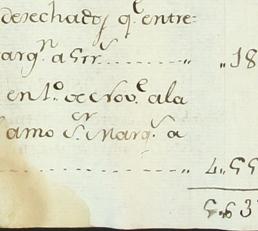 desechados q.e entre-
arg.n a Srr.s ........ „ „ 18
en 1.o de Nov.e a la
amo S.r Marq.s a
.................. „ 4.55
5.63